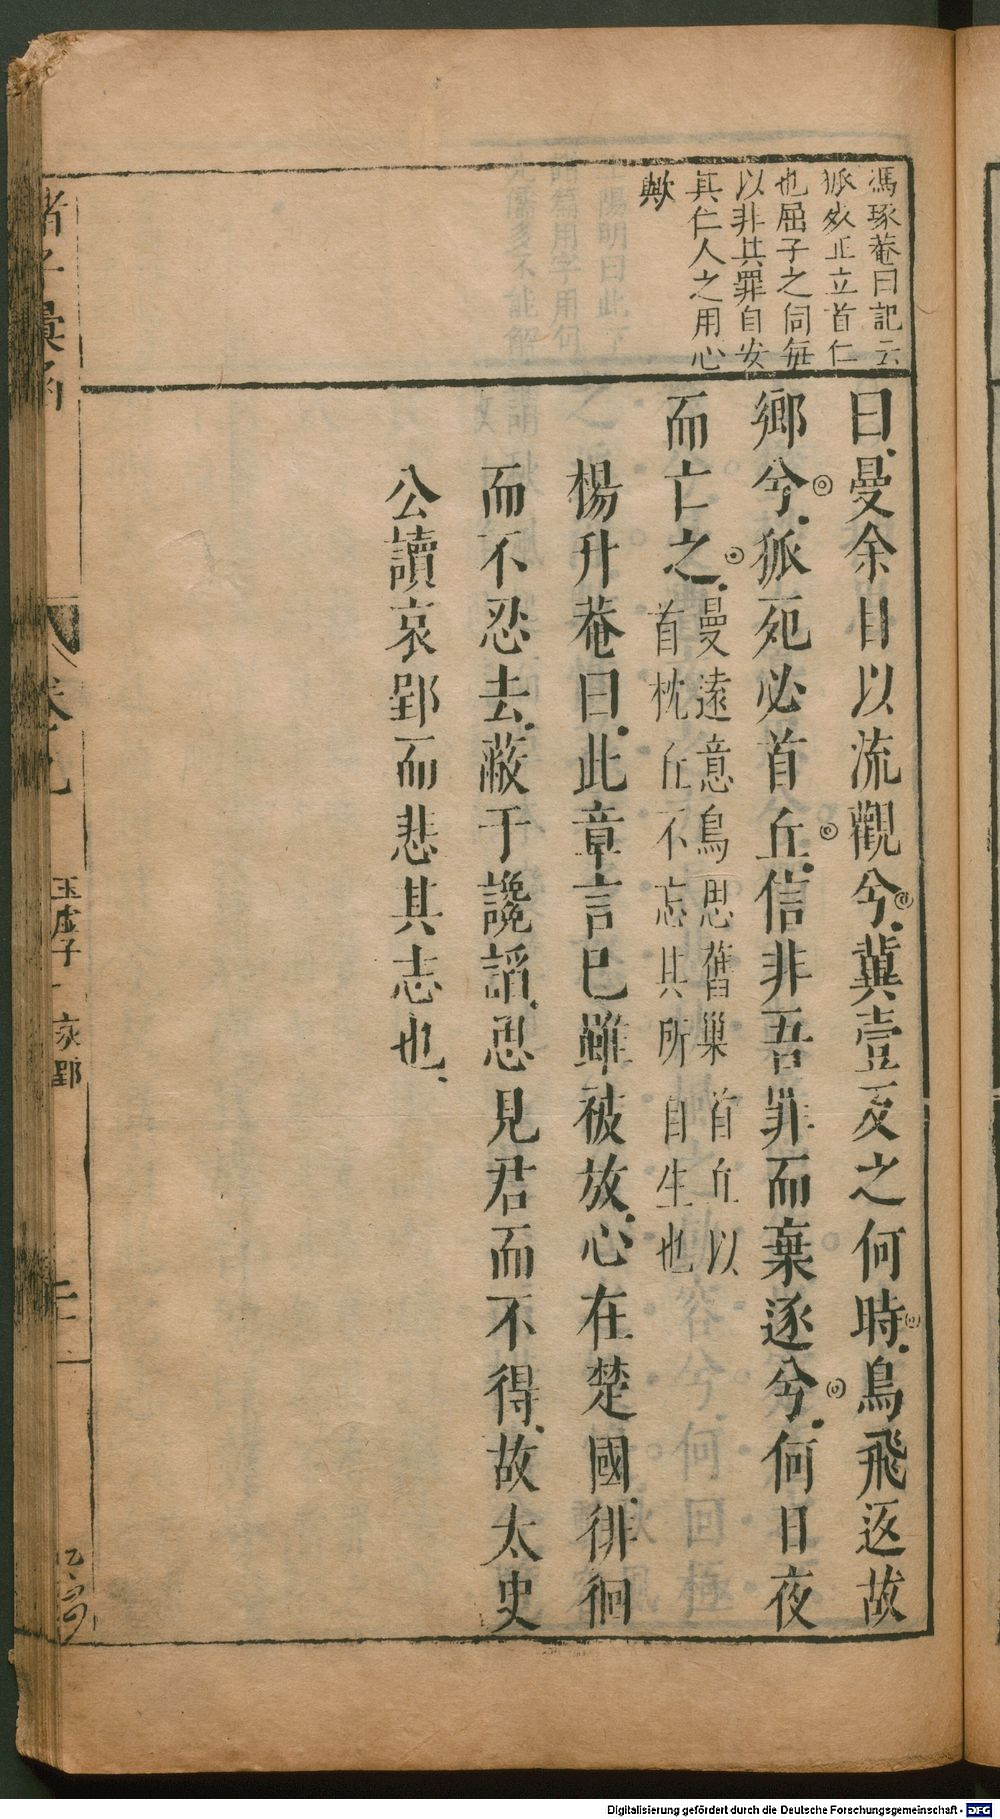 馮琢菴曰記云
狐死正立首仁
也屈子之同每
以非其罪自安
其仁人之用心
歟
曰曼余目以流觀兮冀壹反之何時鳥飛返故
鄉兮狐死必首丘信非吾罪而棄逐兮何日夜
而亡之
曼遠意鳥思舊巢首丘以
首枕丘不忘其所自生也
楊升菴曰此章言已雖被放心在楚國徘徊
而不忍去蔽于讒謟思見君而不得故太史
公讀哀郢而悲其志也
諸子彙函
卷九
玉虛子
哀郢
Digitalisierung gefördert durch die Deutsche Forschungsgemeinschaft - DFG